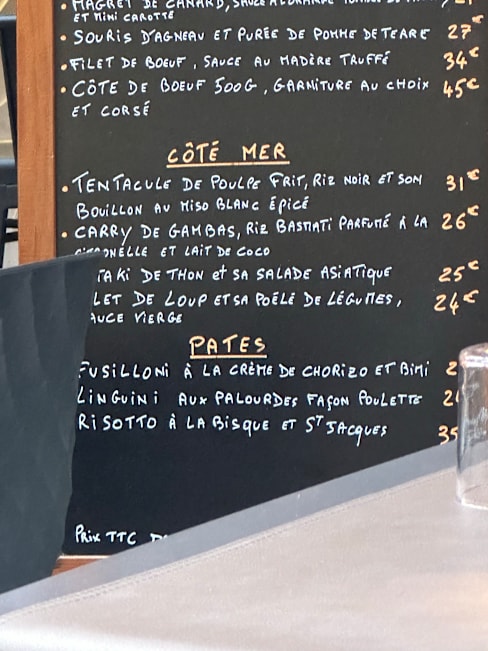 • MAGRET DE CANARD, SAUCE
ET MINI CAROTTE
• SOURIS D'AGNEAU ET PURÉE DE POMME DE TERRE 27€
• FILET DE BOEUF, SAUCE AU MADÈRE TRUFFÉ 34€
• CÔTE DE BOEUF 500G, GARNITURE AU CHOIX 45€
ET CORSÉ
CÔTÉ MER
• TENTACULE DE POULPE FRIT, RIZ NOIR ET SON 31€
BOUILLON AU MISO BLANC ÉPICÉ
• CARRY DE GAMBAS, RIZ BASMATI PARFUMÉ À LA 26€
ET LAIT DE COCO
TAKI DE THON ET SA SALADE ASIATIQUE 25€
LET DE LOUP ET SA POÊLÉ DE LÉGUMES, 24€
AUCE VIERGE
PATES
FUSILLONI À LA CRÈME DE CHORIZO ET BIMI 2
LINGUINI AUX PALOURDES FAÇON POULETTE 2
RISOTTO À LA BISQUE ET ST JACQUES 35
Prix TTC